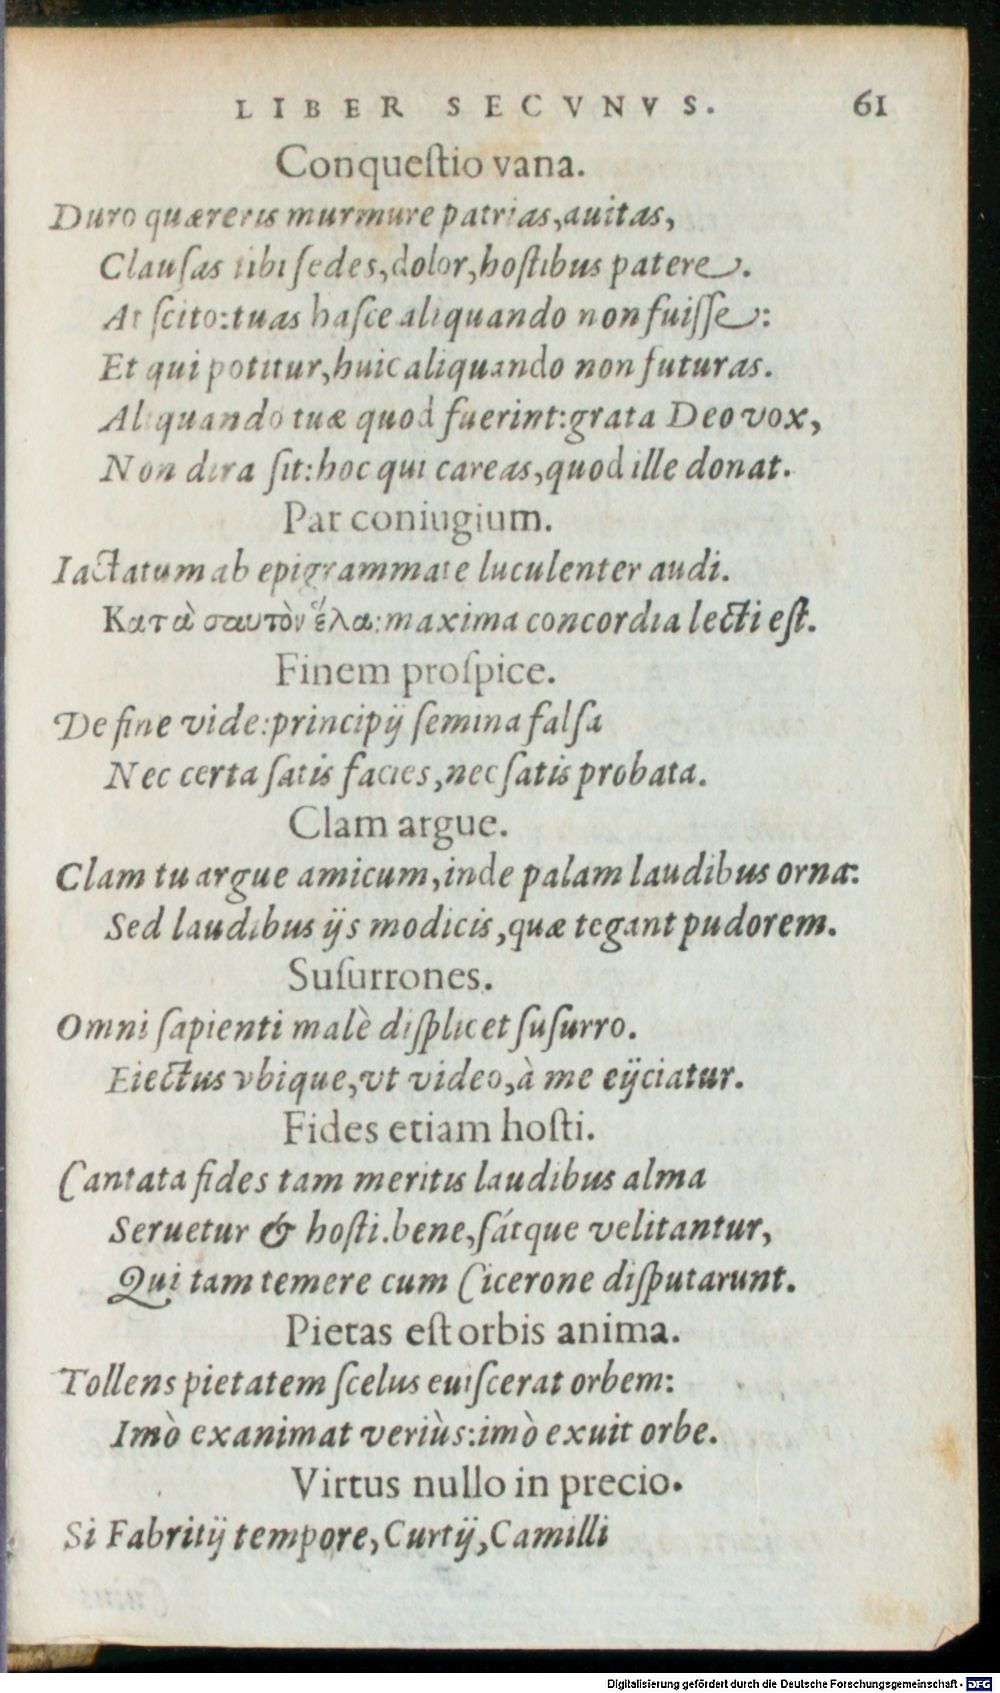 LIBER SECVNVS. 61
Conqueſtio vana.
Duro quæreris murmure patrias,auitas,
Clauſas tibi ſedes,dolor,hoſtibus patere.
At ſcito:tuas haſce aliquando non fuiſſe:
Et qui potitur,huic aliquando non futuras.
Aliquando tuæ quod fuerint:grata Deo vox,
Non dira ſit:hoc qui careas,quod ille donat.
Par coniugium.
Iactatum ab epigrammate luculenter audi.
Κατὰ σαυτὸν ἔλα:maxima concordia lecti eſt.
Finem proſpice.
De fine vide:principij ſemina falſa
Nec certa ſatis facies,nec ſatis probata.
Clam argue.
Clam tu argue amicum,inde palam laudibus orna:
Sed laudibus ijs modicis,quæ tegant pudorem.
Suſurrones.
Omni ſapienti malè diſplicet ſuſurro.
Eiectus vbique,vt video,à me eijciatur.
Fides etiam hoſti.
Cantata fides tam meritis laudibus alma
Seruetur & hoſti.bene,ſátque velitantur,
Qui tam temere cum Cicerone diſputarunt.
Pietas eſt orbis anima.
Tollens pietatem ſcelus euiſcerat orbem:
Imò exanimat veriùs:imò exuit orbe.
Virtus nullo in precio.
Si Fabritij tempore,Curtij,Camilli
Digitalisierung gefördert durch die Deutsche Forschungsgemeinschaft - DFG